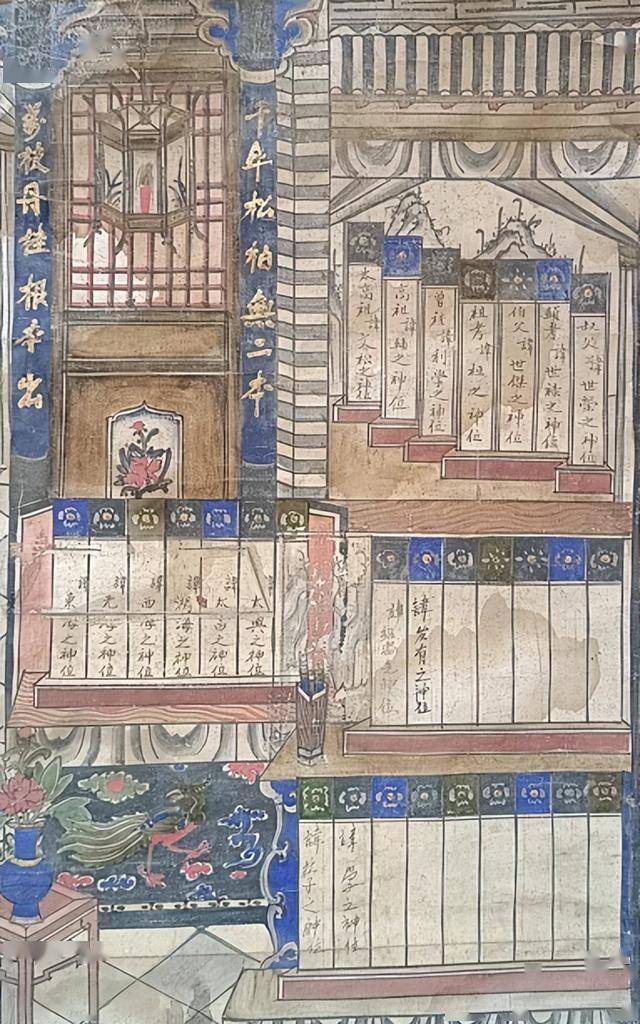 千年松柏無二本
萬枝丹桂根本出
太高祖諱松之神位
高祖諱輔之神位
曾祖諱利學之神位
祖考諱桓之神位
伯父諱世傑之神位
顯考諱世禄之神位
叔父諱世榮之神位
諱東海之神位
諱元海之神位
諱西海之神位
諱湖海之神位
諱太之神位
諱太興之神位
諱維之神位
諱發有之神位
諱子之神位
諱之神位